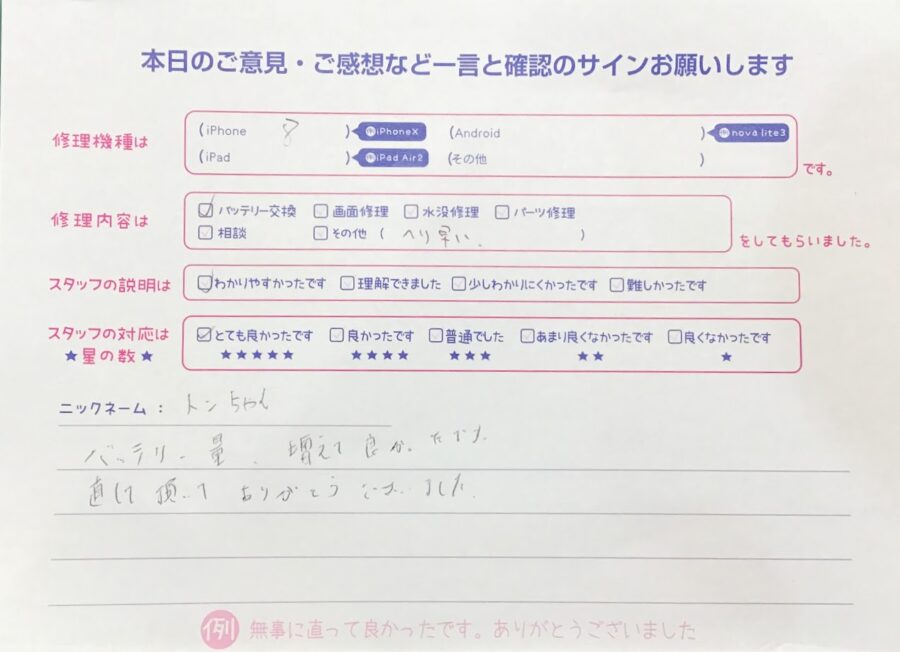 本日のご意見・ご感想など一言と確認のサインお願いします
修理機種は (iPhone 8 ) iPhoneX (Android ) nova lite3
(iPad ) iPad Air2 (その他 ) です。
修理内容は ☑バッテリー交換 □画面修理 □水没修理 □パーツ修理
□相談 □その他 ( ヘリ早い. ) をしてもらいました。
スタッフの説明は ☑わかりやすかったです □理解できました □少しわかりにくかったです □難しかったです
スタッフの対応は ☑とても良かったです □良かったです □普通でした □あまり良くなかったです □良くなかったです
★星の数★ ★★★★★ ★★★★ ★★★ ★★ ★
ニックネーム : トンちゃん
バッテリー量、増えて良かったです
直して頂いてありがとうございました
例 無事に直って良かったです。ありがとうございました